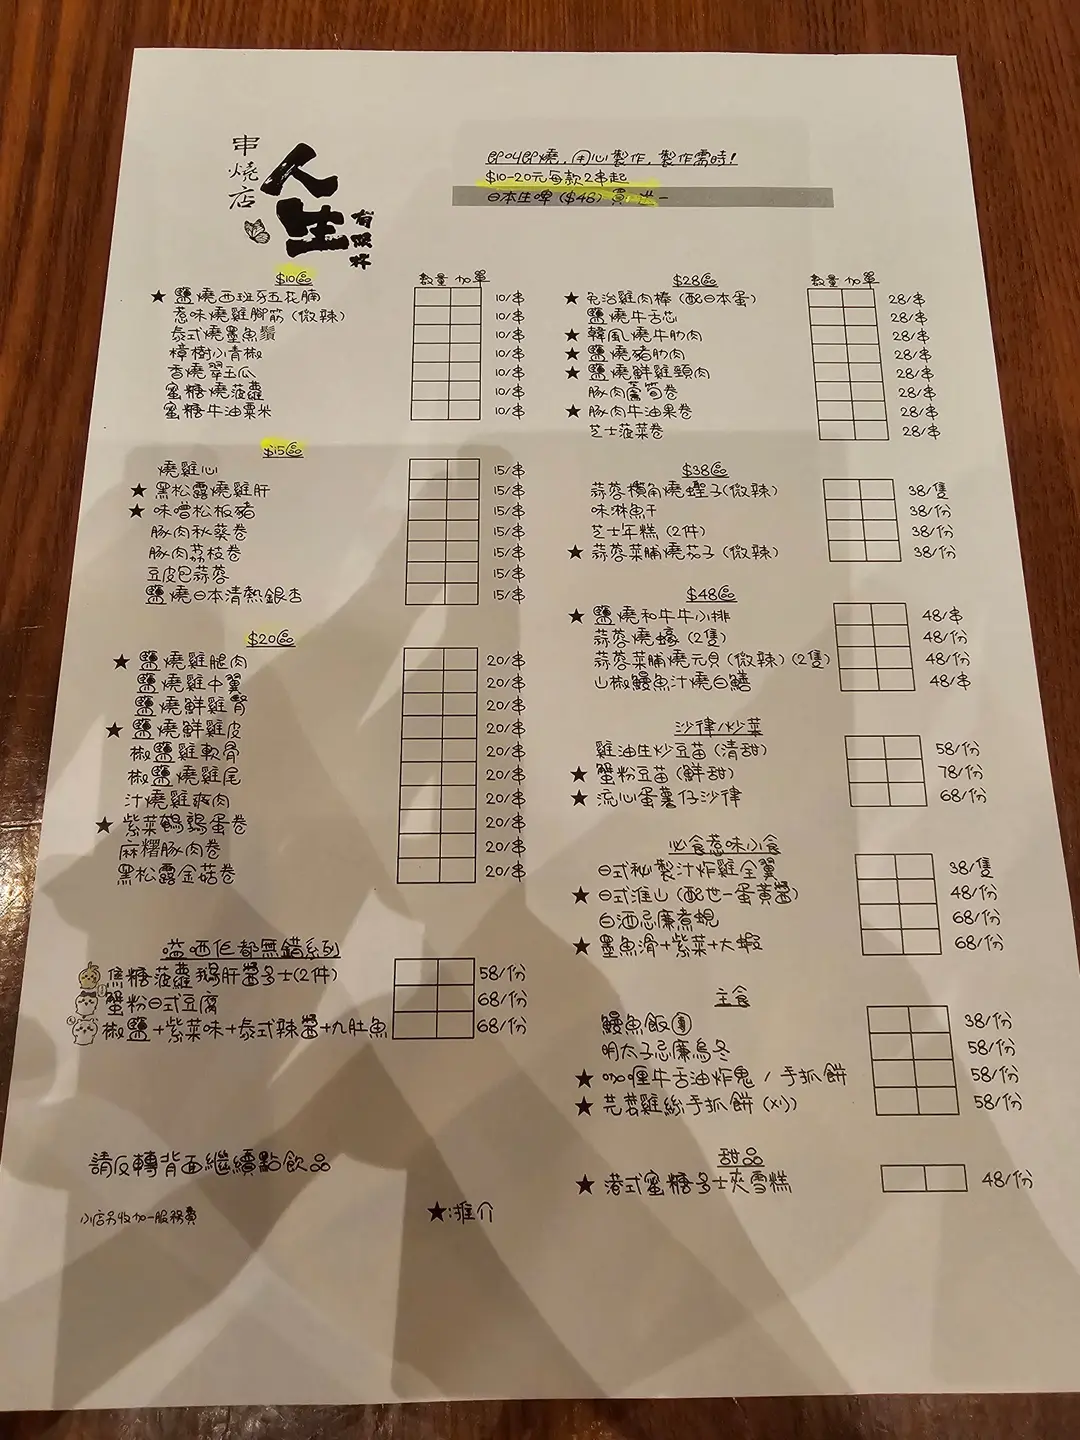 串燒店
人生
有限杯
即叫即燒，用心製作，製作需時！
$10-20元每款2串起
日本生啤 ($48) 買一送一
$10區
數量 加單
★ 鹽燒西班牙五花腩 10/串
惹味燒雞腳筋 (微辣) 10/串
泰式燒墨魚鬚 10/串
樟樹小青椒 10/串
香燒翠玉瓜 10/串
蜜糖燒菠蘿 10/串
蜜糖牛油粟米 10/串
$15區
燒雞心 15/串
★ 黑松露燒雞肝 15/串
★ 味噌松板豬 15/串
豚肉秋葵卷 15/串
豚肉荔枝卷 15/串
豆皮包蒜蓉 15/串
鹽燒日本清熱銀杏 15/串
$20區
★ 鹽燒雞腿肉 20/串
鹽燒雞中翼 20/串
鹽燒鮮雞腎 20/串
★ 鹽燒鮮雞皮 20/串
椒鹽雞軟骨 20/串
椒鹽燒雞尾 20/串
汁燒雞爽肉 20/串
★ 紫菜鵪鶉蛋卷 20/串
麻糬豚肉卷 20/串
黑松露金菇卷 20/串
嗌哂佢都無錯系列
焦糖菠蘿鵝肝醬多士(2件) 58/份
蟹粉日式豆腐 68/份
椒鹽+紫菜味+泰式辣醬+九肚魚 68/份
請反轉背面繼續點飲品
小店另收加一服務費
★:推介
$28區
數量 加單
★ 免治雞肉棒 (配日本蛋) 28/串
鹽燒牛舌芯 28/串
★ 韓風燒牛肋肉 28/串
★ 鹽燒豬肋肉 28/串
★ 鹽燒鮮雞頸肉 28/串
豚肉蘆筍卷 28/串
★ 豚肉牛油果卷 28/串
芝士菠菜卷 28/串
$38區
蒜蓉欖角燒蟶子(微辣) 38/隻
味淋魚干 38/份
芝士年糕 (2件) 38/份
★ 蒜蓉菜脯燒茄子 (微辣) 38/份
$48區
★ 鹽燒和牛牛小排 48/串
蒜蓉燒蠔 (2隻) 48/份
蒜蓉菜脯燒元貝 (微辣) (2隻) 48/份
山椒鰻魚汁燒白鱔 48/串
沙律/炒菜
雞油生炒豆苗 (清甜) 58/份
★ 蟹粉豆苗 (鮮甜) 78/份
★ 流心蛋薯仔沙律 68/份
必食惹味小食
日式秘製汁炸雞全翼 38/隻
★ 日式淮山 (配世一蛋黃醬) 48/份
白酒忌廉煮蜆 68/份
★ 墨魚滑+紫菜+大蝦 68/份
主食
鰻魚飯團 38/份
明太子忌廉烏冬 58/份
★ 咖喱牛舌油炸鬼 / 手抓餅 58/份
★ 芫茜雞絲手抓餅 (刈) 58/份
甜品
★ 港式蜜糖多士夾雪糕 48/份